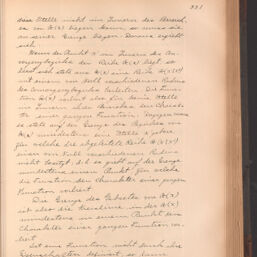 331
diese Stelle nicht im Innern des Bereichs
von 𝔓(x) liegen kann, so muss sie
an seiner Grenze liegen. Daraus ergibt
sich
Wenn der Punkt x im Innern des Con-
vergenzbezirks der Reihe 𝔓(x) liegt, so
lässt sich stets aus 𝔓(x) eine Reihe
mit einem von Null verschiedenen Radius
des Convergenzbezirks herleiten. Die Func-
tion 𝔓(x) verliert also für keine Stelle
im Innern ihres Bereiches den Charakter
einer ganzen Function; dagegen muss
es stets auf der Grenze des Bereiches von
𝔓(x) mindestens eine Stelle x' geben
für welche die abgeleitete Reihe
einen von Null verschiedenen Radius
nicht besitzt, d.h. es giebt auf der Grenze
mindestens einen Punkt für welche
die Function den Charakter einer ganzen
Function verliert.
Die Grenze des Gebietes von 𝔓(x)
ist also die Grenze, in der 𝔓(x)
mindestens in einem Punkt den
Charakter einer ganzen Function ver-
liert.
Ist eine Function nicht durch ihre
Eigenschaften definirt, so kann